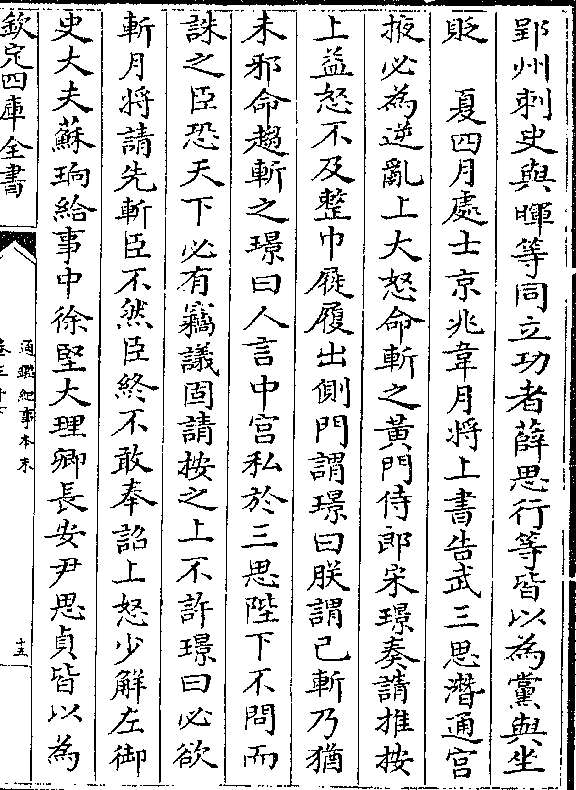 郢州刺史與暉等同立功者薛思行等皆以為黨與坐
貶　夏四月處士京兆韋月將上書告武三思潛通宮
掖必為逆亂上大怒命斬之黃門侍郎宋璟奏請推按
上益怒不及整巾屣履出側門謂璟曰朕謂已斬乃猶
未邪命趨斬之璟曰人言中宮私於三思陛下不問而
誅之臣恐天下必有竊議固請按之上不許璟曰必欲
斬月將請先斬臣不然臣終不敢奉詔上怒少解左御
史大夫蘇珦給事中徐堅大理卿長安尹思貞皆以為
欽定四庫全書
通鑑紀事本末
十五